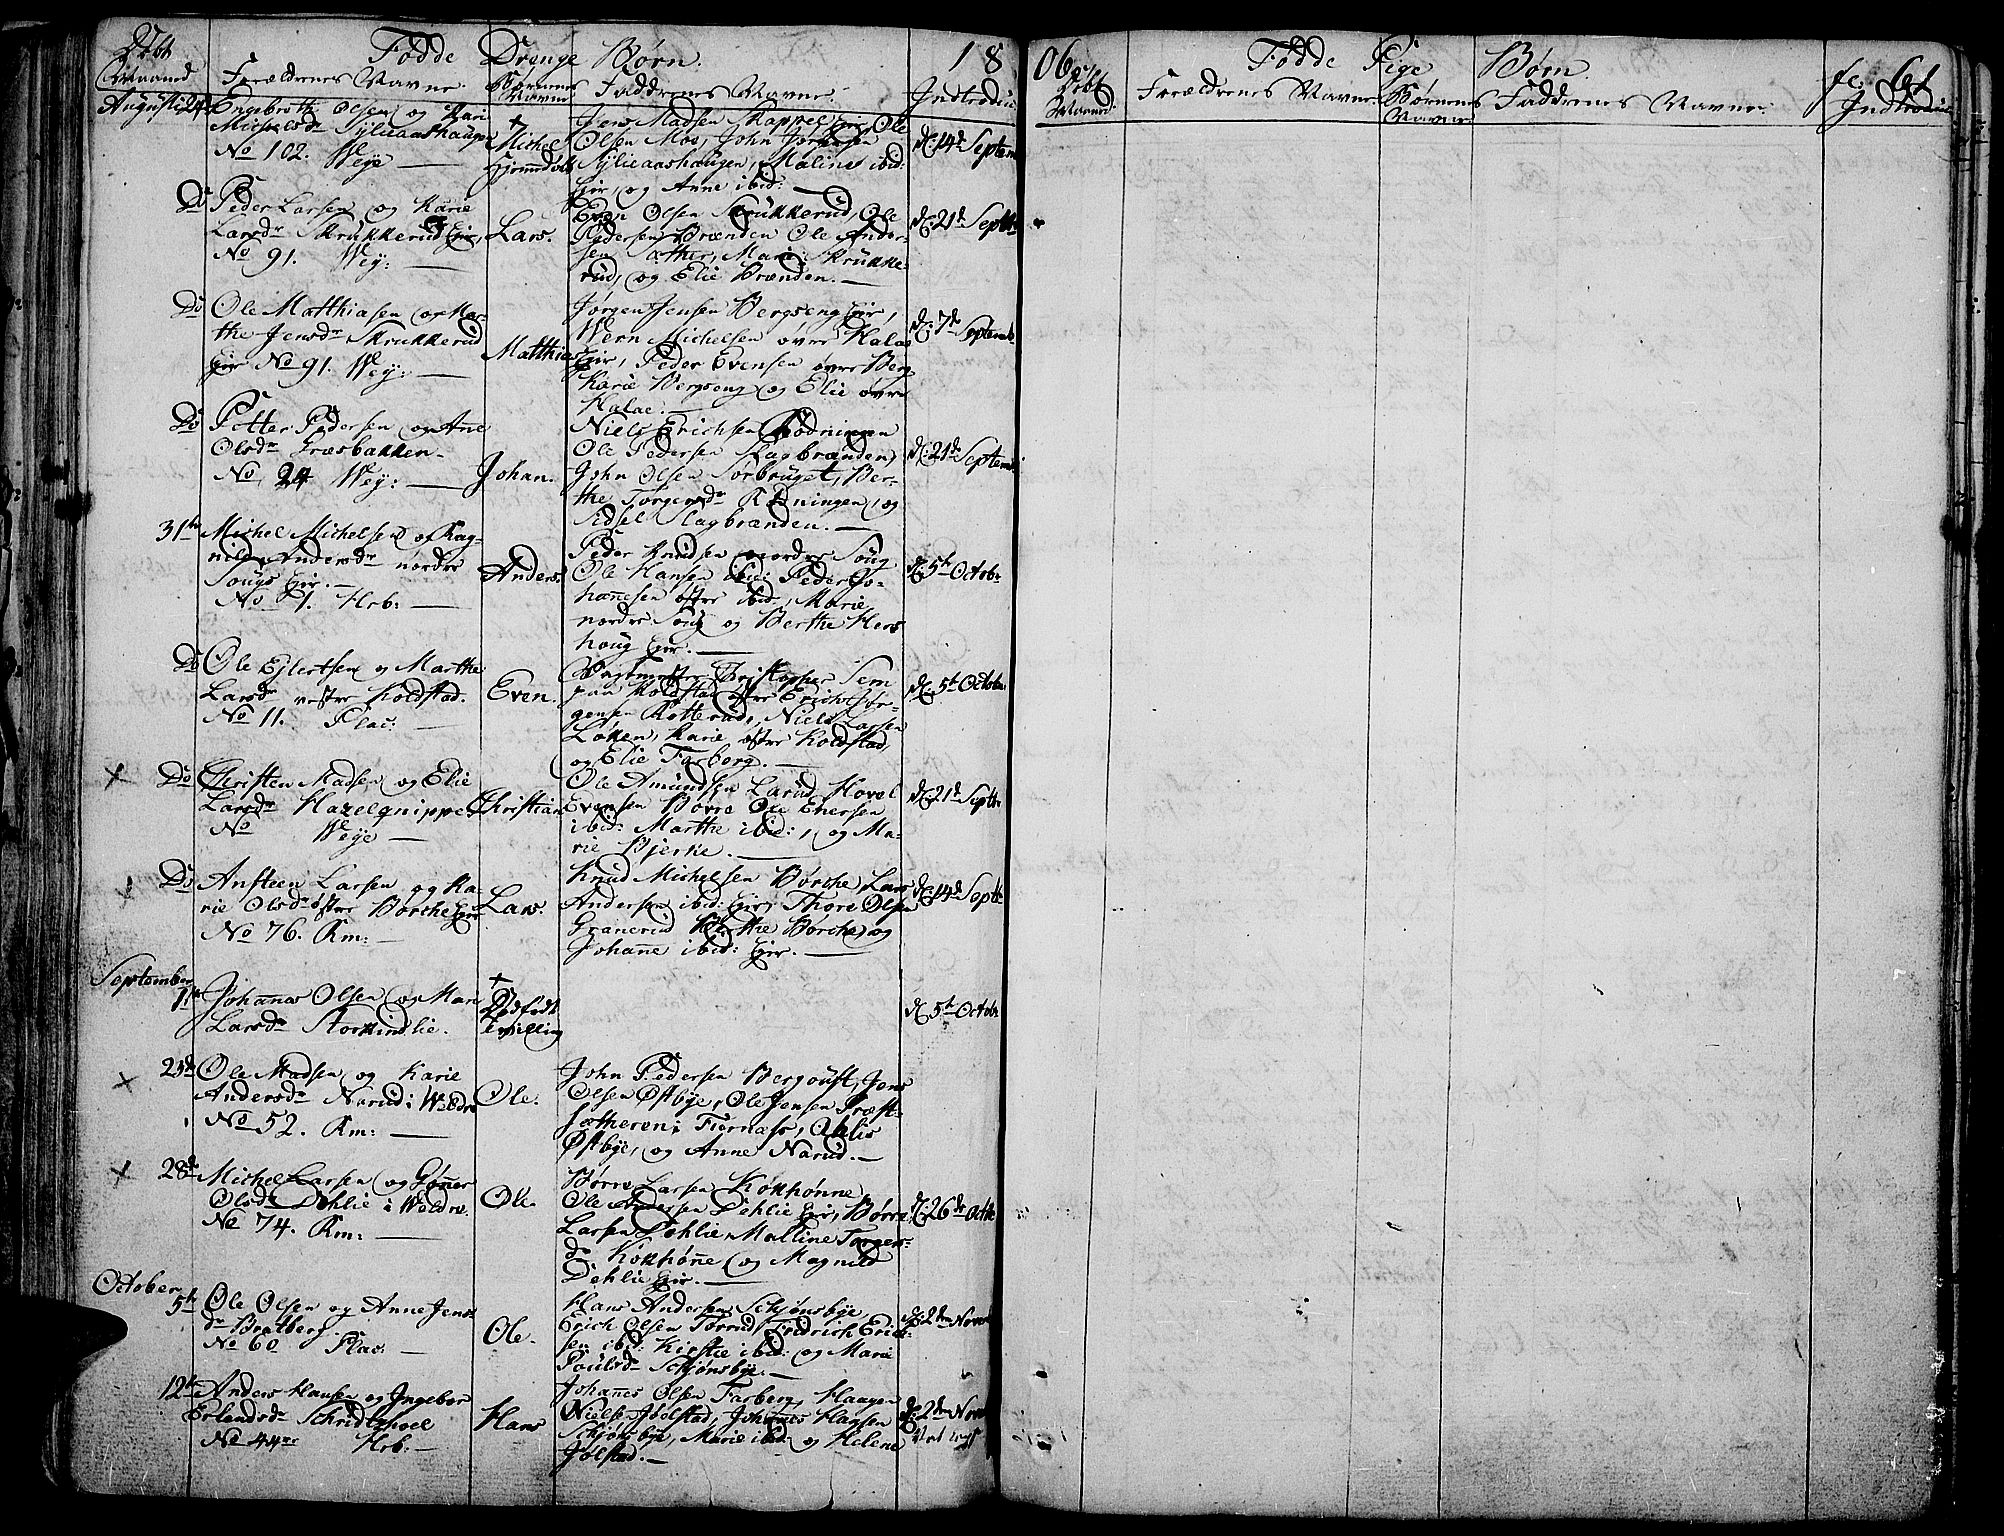 Fødde Drenge Børn. 18
Maaned Forældrenes Navne. Børnenes Navne Faddrenes Navne. Indtroduc
Augusti 24 Engebrethe Olsen og Kari
Michelsdr Sylieaashaugen
No 102. Weye —
+
Michel
Hjemedøbt
Jens Madsen Kappel Eir, Ole
Olsen Moe, John Jørgensen
Sylieaashaugen, Maline ibid:
Eir, og Anne ibid: —
d: 14de Septem
Do Peder Larsen og Karie
Larsdr Skrukkerud Eir,
No 91. Wey: —
Lars.
Even Olsen Skrukkerud, Ole
Pedersen Brænden Ole Ander-
sen Sæther, Marie Skrukke-
rud, og Elie Brænden. —
d: 21de Septbr
Do Ole Matthiasen og Mar-
the Jensdr Skrukkerud
Eir No 91. Wey: —
Matthias
Jørgen Jensen Bergseng Eir,
Wern Michelsen øvre Kalae
Eir, Peder Evensen øvre Berg
Karie Bergseng og Elie øvre
Kalae. —
d: 7de Septemb
Do Petter Pedersen og Anne
Olsdr Græsbakken —
No 24 Wey: —
Johan.
Niels Erichsen Rødningen
Ole Pedersen Slagbrænden,
John Olsen Sørbruget, Ber-
the Torgersdr Rødningen, og
Sidsel Slagbrænden. —
d: 21de Septemb
31te Michel Michelsen og Rag-
nild Andersdr nordre
Soug Eir. —
No 1. Hrb: —
Anders.
Peder Knudsen nordre Soug
Ole Hansen ibid: Peder Jo-
hannesen østre ibid:, Marie
nordre Soug og Berthe Hers
houg Eir. —
d: 5te Octobr
Do Ole Ejlertsen og Marthe
Larsdr vestre Koldstad.
No 11. Plac: —
Even.
Christopher Sem
paa Koldstad østre Erich Jør-
gensen Rotterud, Niels Larsen
Løken, Karie østre Koldstad,
og Elie Farberg. —
d: 5te Octobr
× Do Christen Madsen og Elie
Larsdr Hazelgnippe
No Weye —
Christian
Ole Amundsen Larud, Hovel
Evensen Børre Ole Enersen
ibid: Marthe ibid:, og Ma-
rie Bjerke. —
d: 21de Septbr
Do Ansteen Larsen og Ka-
rie Olsdr østre Børche Eir
No 76. Rm: —
Lars.
Knud Michelsen Børche, Lars
Andersen ibid: Eir, Thore Olsen
Granerud Berthe Børche, og
Johanne ibid: Eir. —
d: 14de Septb
September
11te Johannes Olsen og Mari
Larsdr Storkindlie.
+
Dødfødt
tvilling
d: 5te Octobr
× 23de Ole Madsen og Karie
Andersdr Narud i Weldre
No 52. Rm: —
Ole.
John Pedersen Bergoust, Jens
Olsen Østbye, Ole Jensen Præst-
sætheren i Fiornæss, Ahlis
Østbye, og Anne Narud. —
× 28de Michel Larsen og Gøner
Olsdr Dehlie i Weldre.
No 74. Rm: —
Ole
Børre Larsen Kokhønne
Ole Andersen Dehlie Eir, Børre
Larsen Dehlie Malline Torgers-
dr Kokhønne og Magnild
Dehlie Eir. —
d: 26de Octbr
October
5te Ole Olsen og Anne Jens
dr Bratberg.
No 60 Plac: —
Ole.
Hans Andersen Schjønsbye,
Erich Olsen Torrud, Fridrich Erich-
sen ibid: Kirstie ibid: og Marie
Poulsdr Schjønsbye. —
d: 2den Novbr
12te Anders Hansen og Ingebor
Erlandsdr Schridshoel
No 44 Hrb: —
Hans
Johannes Olsen Farberg, Haagen
Nielsen Jølstad, Johannes Hagsen
Schjønsbye, Marie ibid: og Helene
Jølstad. —
d: 2den Novbr
06. Fødde Pige Børn. fc. 61
Maaned Forældrenes Navne Børnenes Navne Faddrenes Navne. Indtroduc